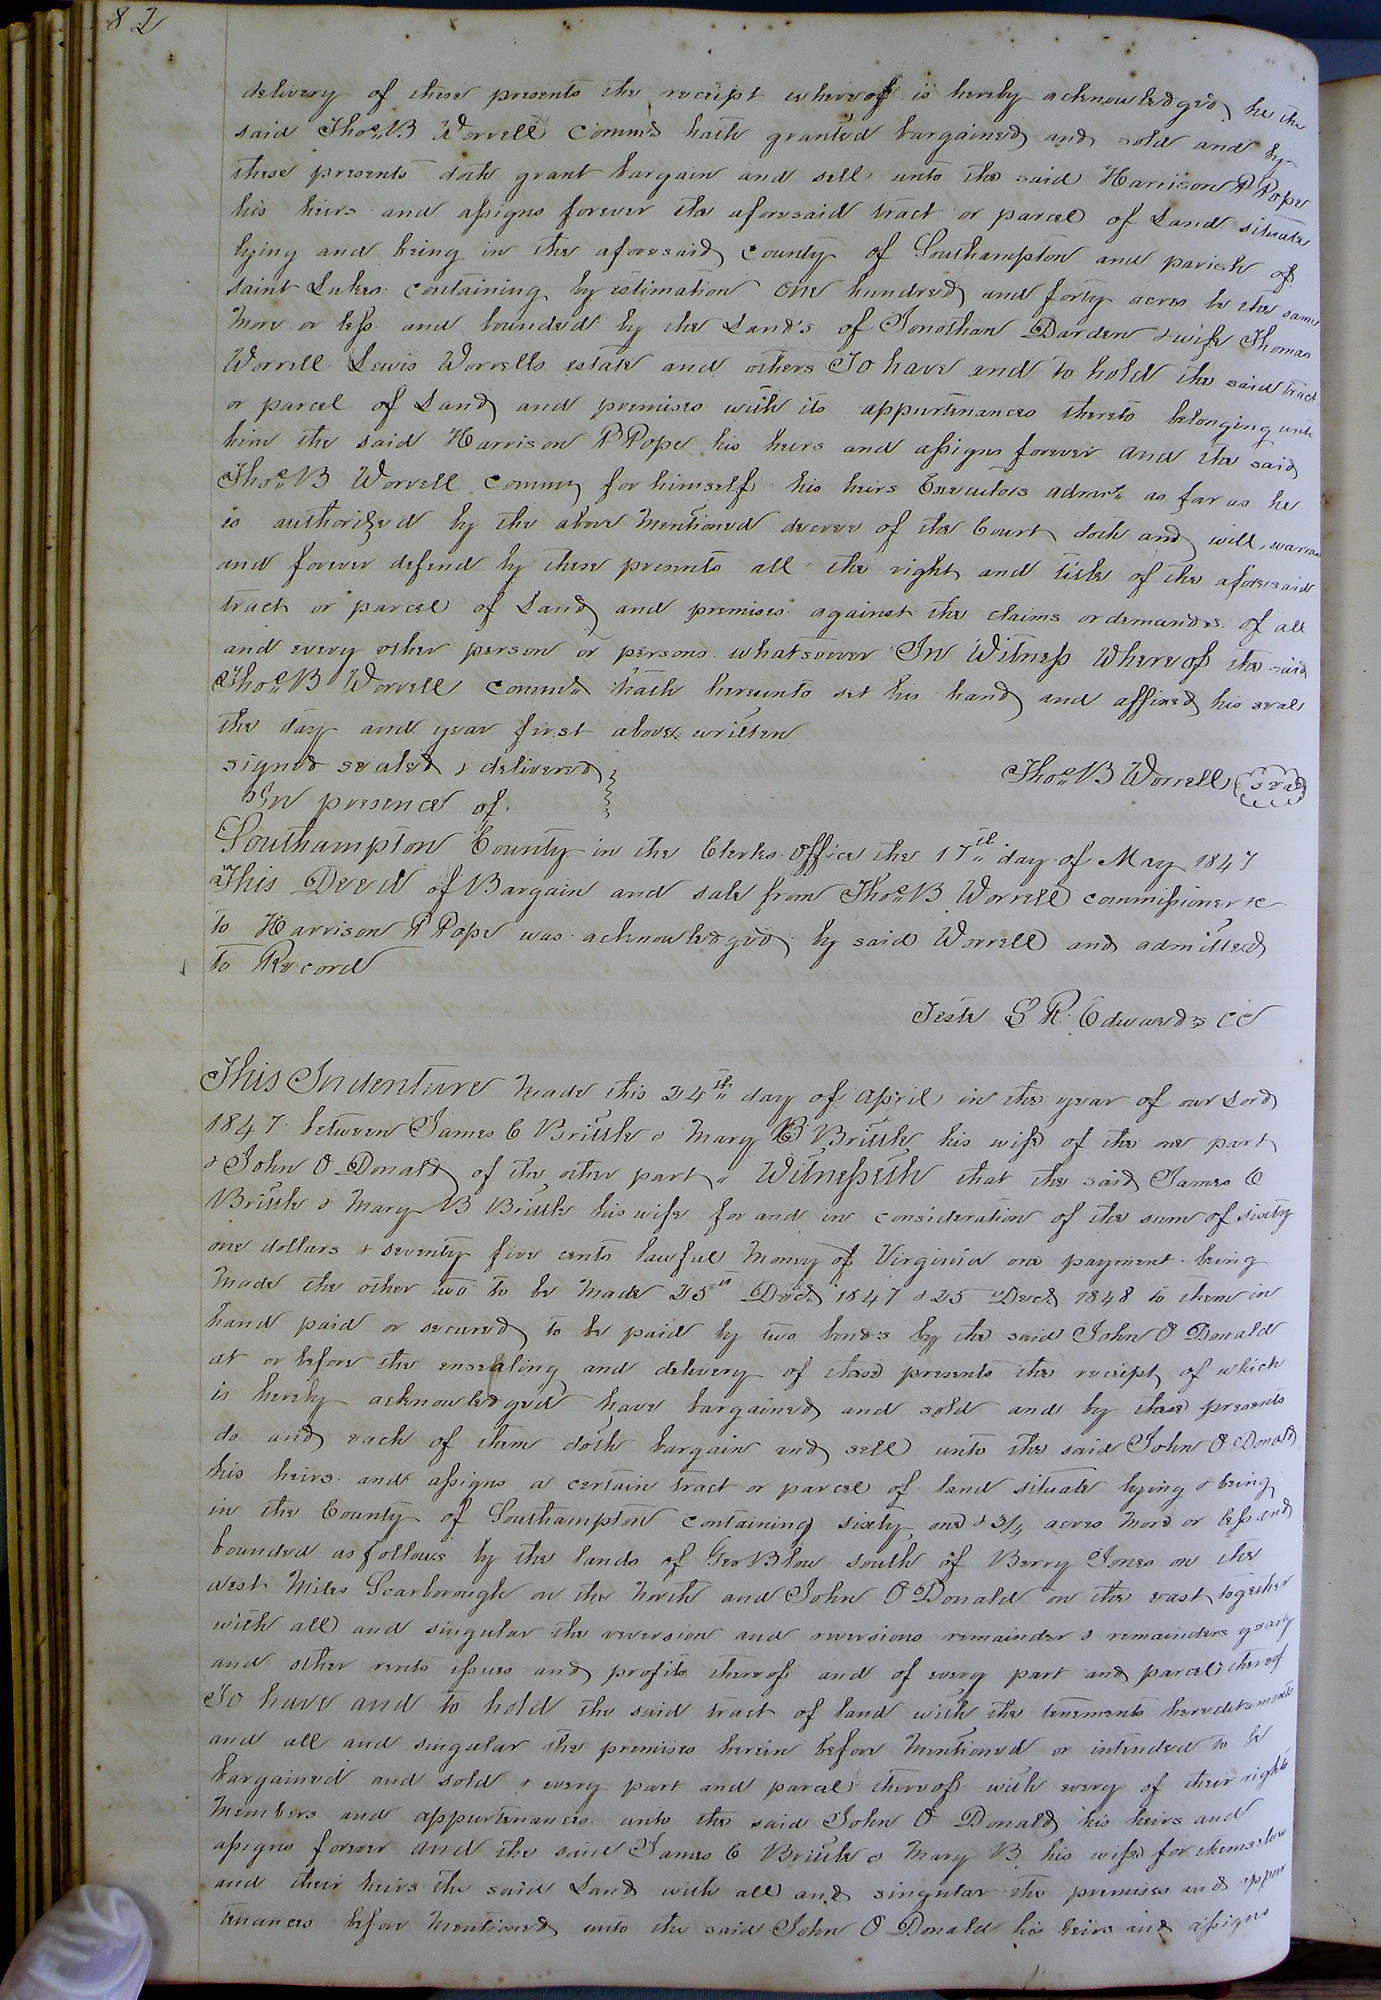 82
delivery of these presents the receipt whereof is hereby acknowledged he the
said Thos. B Worrell Commr hath granted bargained and sold and by
these presents doth grant bargain and sell unto the said Harrison P Pope
his heirs and assigns forever the aforesaid tract or parcel of Land situate
lying and being in the aforesaid County of Southampton and parish of
saint Lukes containing by estimation one hundred and forty acres be the same
more or less and bounded by the Land's of Jonathan Darden & wife Thomas
Worrell Lewis Worrells estate and others To have and to hold the said tract
or parcel of Land and premises with its appurtenances thereto belonging unto
him the said Harrison P Pope his heirs and assigns forever and the said
Thos. B Worrell Commr for himself his heirs Executors admrs as far as he
is authorized by the above mentioned decree of the Court doth and will warran
and forever defend by these presents all the right and title of the aforesaid
tract or parcel of Land and premises against the claims or demandes of all
and every other person or persons whatsoever In Witness Whereof the said
Thos. B Worrell Commr hath hereunto set his hand and affixed his seal
the day and year first above written
signed sealed & delivered
In presence of
Thos. B Worrell seal
Southampton County in the Clerks Office the 17th day of May 1847
This Deed of Bargain and sale from Thos. B Worrell commissioner &c
to Harrison P Pope was acknowledged by said Worrell and admitted
to Record
Teste L R Edwards CC
This Indenture made this 24th day of april in the year of our Lord
1847 between James E Brittle & Mary B Brittle his wife of the one part
& John O Donald of the other part & Witnesseth that the said James E
Brittle & Mary B Brittle his wife for and in consideration of the sum of sixty
one dollars & seventy five cents lawful money of Virginia one payment being
made the other two to be made 25th Decr. 1847 & 25 Decr. 1848 to them in
hand paid or secured to be paid by two bonds by the said John O Donald
at or before the ensealing and delivery of these presents the receipt of which
is hereby acknowledged have bargained and sold and by these presents
do and each of them doth bargain and sell unto the said John O Donald
his heirs and assigns a certain tract or parcel of land situate lying & being
in the County of Southampton containing sixty one & 3/4 acres more or less and
bounded as follows by the lands of Geo Blow south of Berry Jones on the
west Miles Scarborough on the North and John O Donald on the east together
with all and singular the reversion and reversions remainder & remainders yearly
and other rents issues and profits thereof and of every part and parcel thereof
To have and to hold the said tract of land with the tenements hereditaments
and all and singular the premises herein before mentioned or intended to be
bargained and sold & every part and parcel thereof with every of their rights
members and appurtenances unto the said John O Donald his heirs and
assigns forever and the said James E Brittle & Mary B his wife for themselves
and their heirs the said Land with all and singular the premises and appur
tenances before mentioned unto the said John O Donald his heirs and assigns